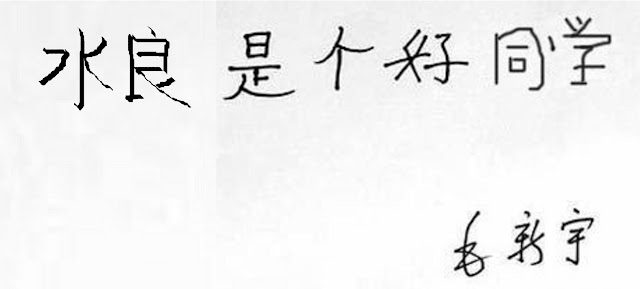 水良是个好同学
毛新宇